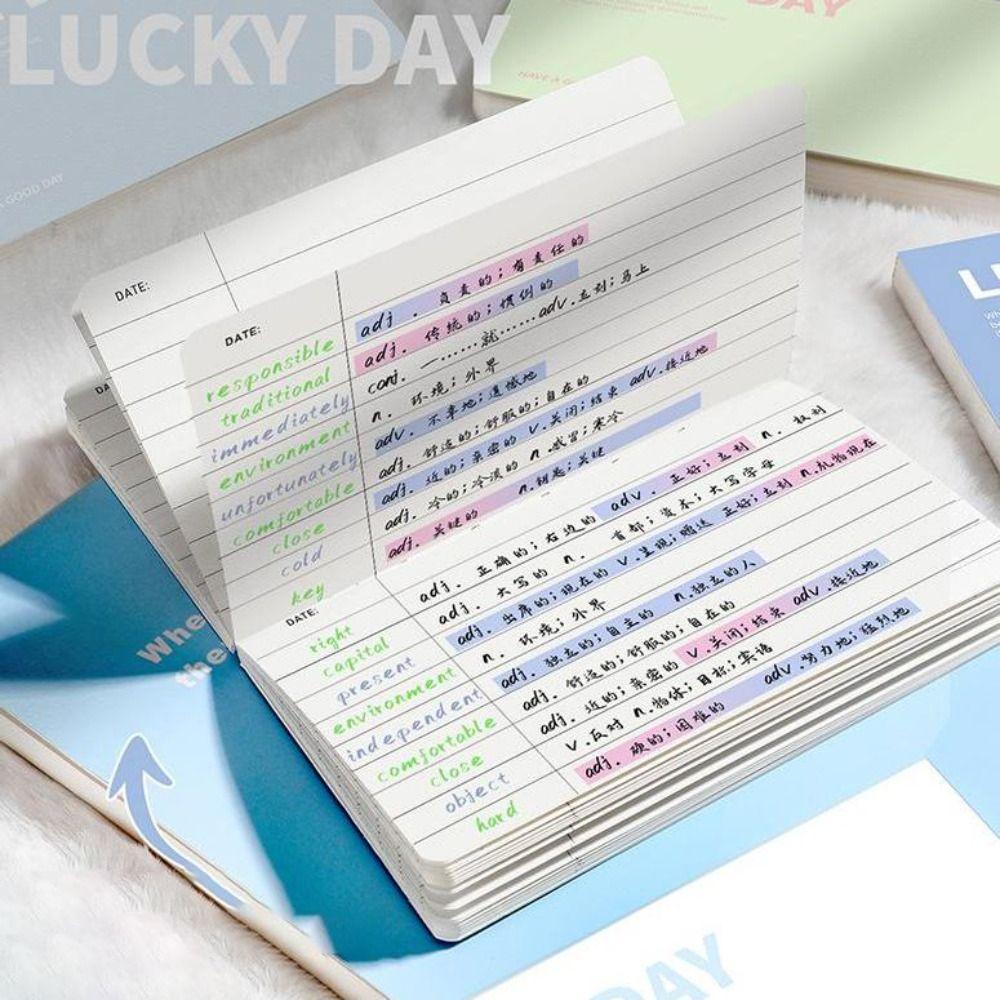 LUCKY DAY
DAY
HAVE A GO
A GOOD DAY
DATE:
DATE:
responsible adj. 负责的;有责任的
traditional adj. 传统的;惯例的
immediately conj. 一……就…… adv.立刻;马上
environment n. 环境;外界
unfortunately adv. 不幸地;遗憾地
comfortable adj. 舒适的;舒服的;自在的
close adj. 近的;亲密的 v.关闭;结束 adv.接近地
cold adj. 冷的;冷淡的 n.感冒;寒冷
key adj. 关键的 n.钥匙;关键
DATE:
right adj. 正确的;右边的 adv. 正好;立刻 n. 权利
capital adj. 大写的 n. 首都;资本;大写字母
present adj. 出席的;现在的 v.呈现;赠送 正好;立刻 n.礼物现在
environment n. 环境;外界
independent adj. 独立的;自主的 n.独立的人
comfortable adj. 舒适的;舒服的;自在的
close adj. 近的;亲密的 v.关闭;结束 adv.接近地
object v.反对 n.物体;目标;宾语
hard adj. 硬的;困难的 adv.努力地;猛烈地
Whe
the
DAY